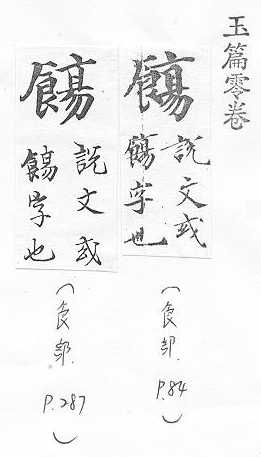 玉篇零卷
説文或
字也
(食部 P.84)
説文或
字也
(食部 P.287)